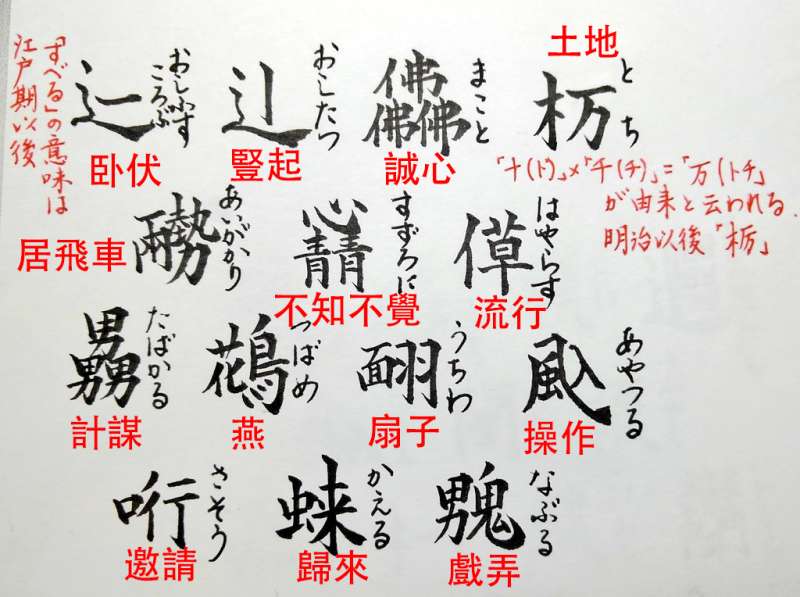 杤
とち
土地
「十(ト)」×「千(チ)」=「万(トチ)」
が由来と云われる.
明治以後「栃」
まこと
誠心
おしたつ
豎起
辷
おしふす
ころぶ
卧伏
「すべる」の意味は
江戸期以後
はやらす
流行
すずろに
不知不覺
あいがかり
居飛車
あやつる
操作
うちわ
扇子
つばめ
燕
たばかる
計謀
なぶる
戲弄
かえる
歸來
哘
さそう
邀請